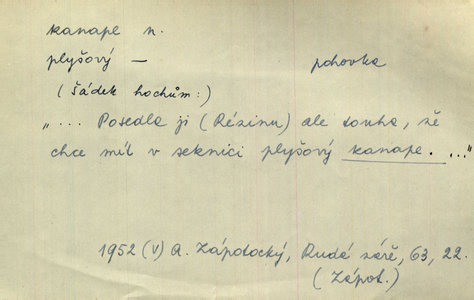 kanape n.
plyšový — pohovka
(Šádek hochům:)
„... Posedla ji (Rézinu) ale touha, že
chce mít v seknici plyšový kanape. ..."
1952 (V) A. Zápotocký, Rudá záře, 63, 22.
(Zápot.)